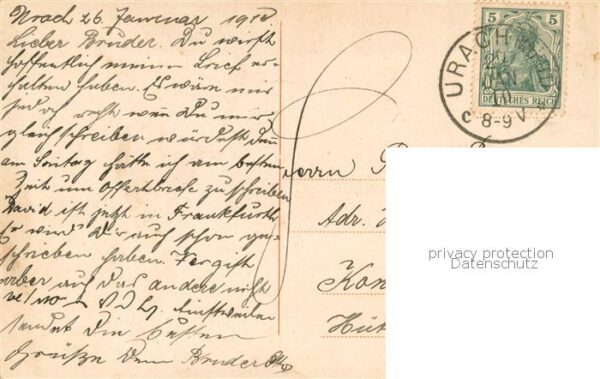 Urach 26. Januar 1910
Lieber Bruder. Du wirst
hoffentlich meinen Brief er-
halten haben. Es wäre mir
jedoch recht wen Du mir
gleich schreiben würdest den
am Sontag hätte ich am besten
Zeit um Offertbriefe zu schreiben
David ist jetzt in Frankfurt.
Er wird Dir auch schon ge-
schrieben haben. Vergiß
aber auf das andere nicht
Einstweilen
sendet Die besten
Grüße Dein Bruder Otto
Herrn
Adr.
Kon
Hüt
5 5
DEUTSCHES REICH
URACH
26
JAN
10
C 8-9 V
privacy protection
Datenschutz